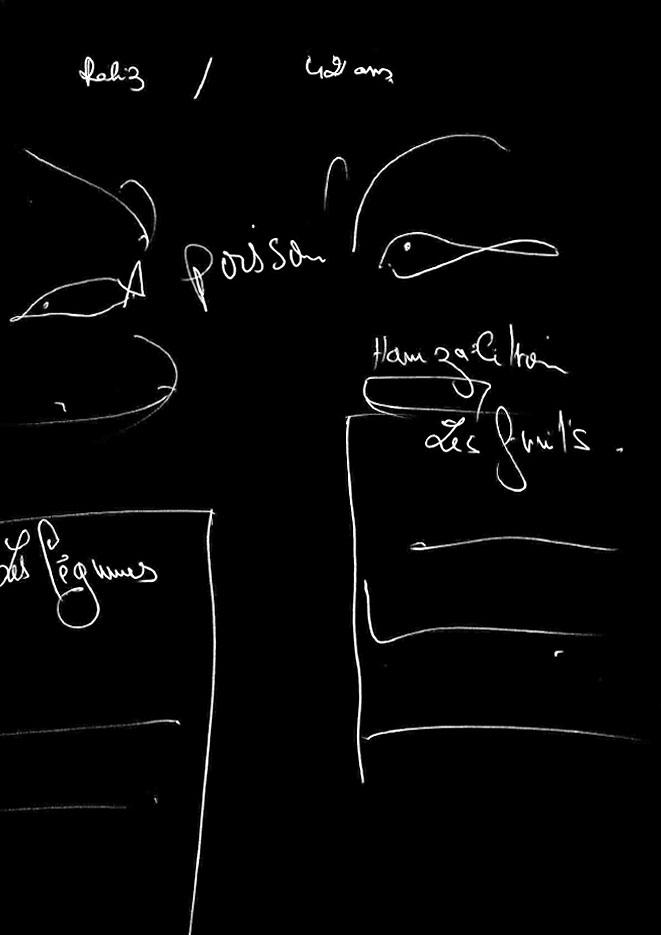 / 42 ans
poisson
Hamza Citron
Les fruits.
Les légumes